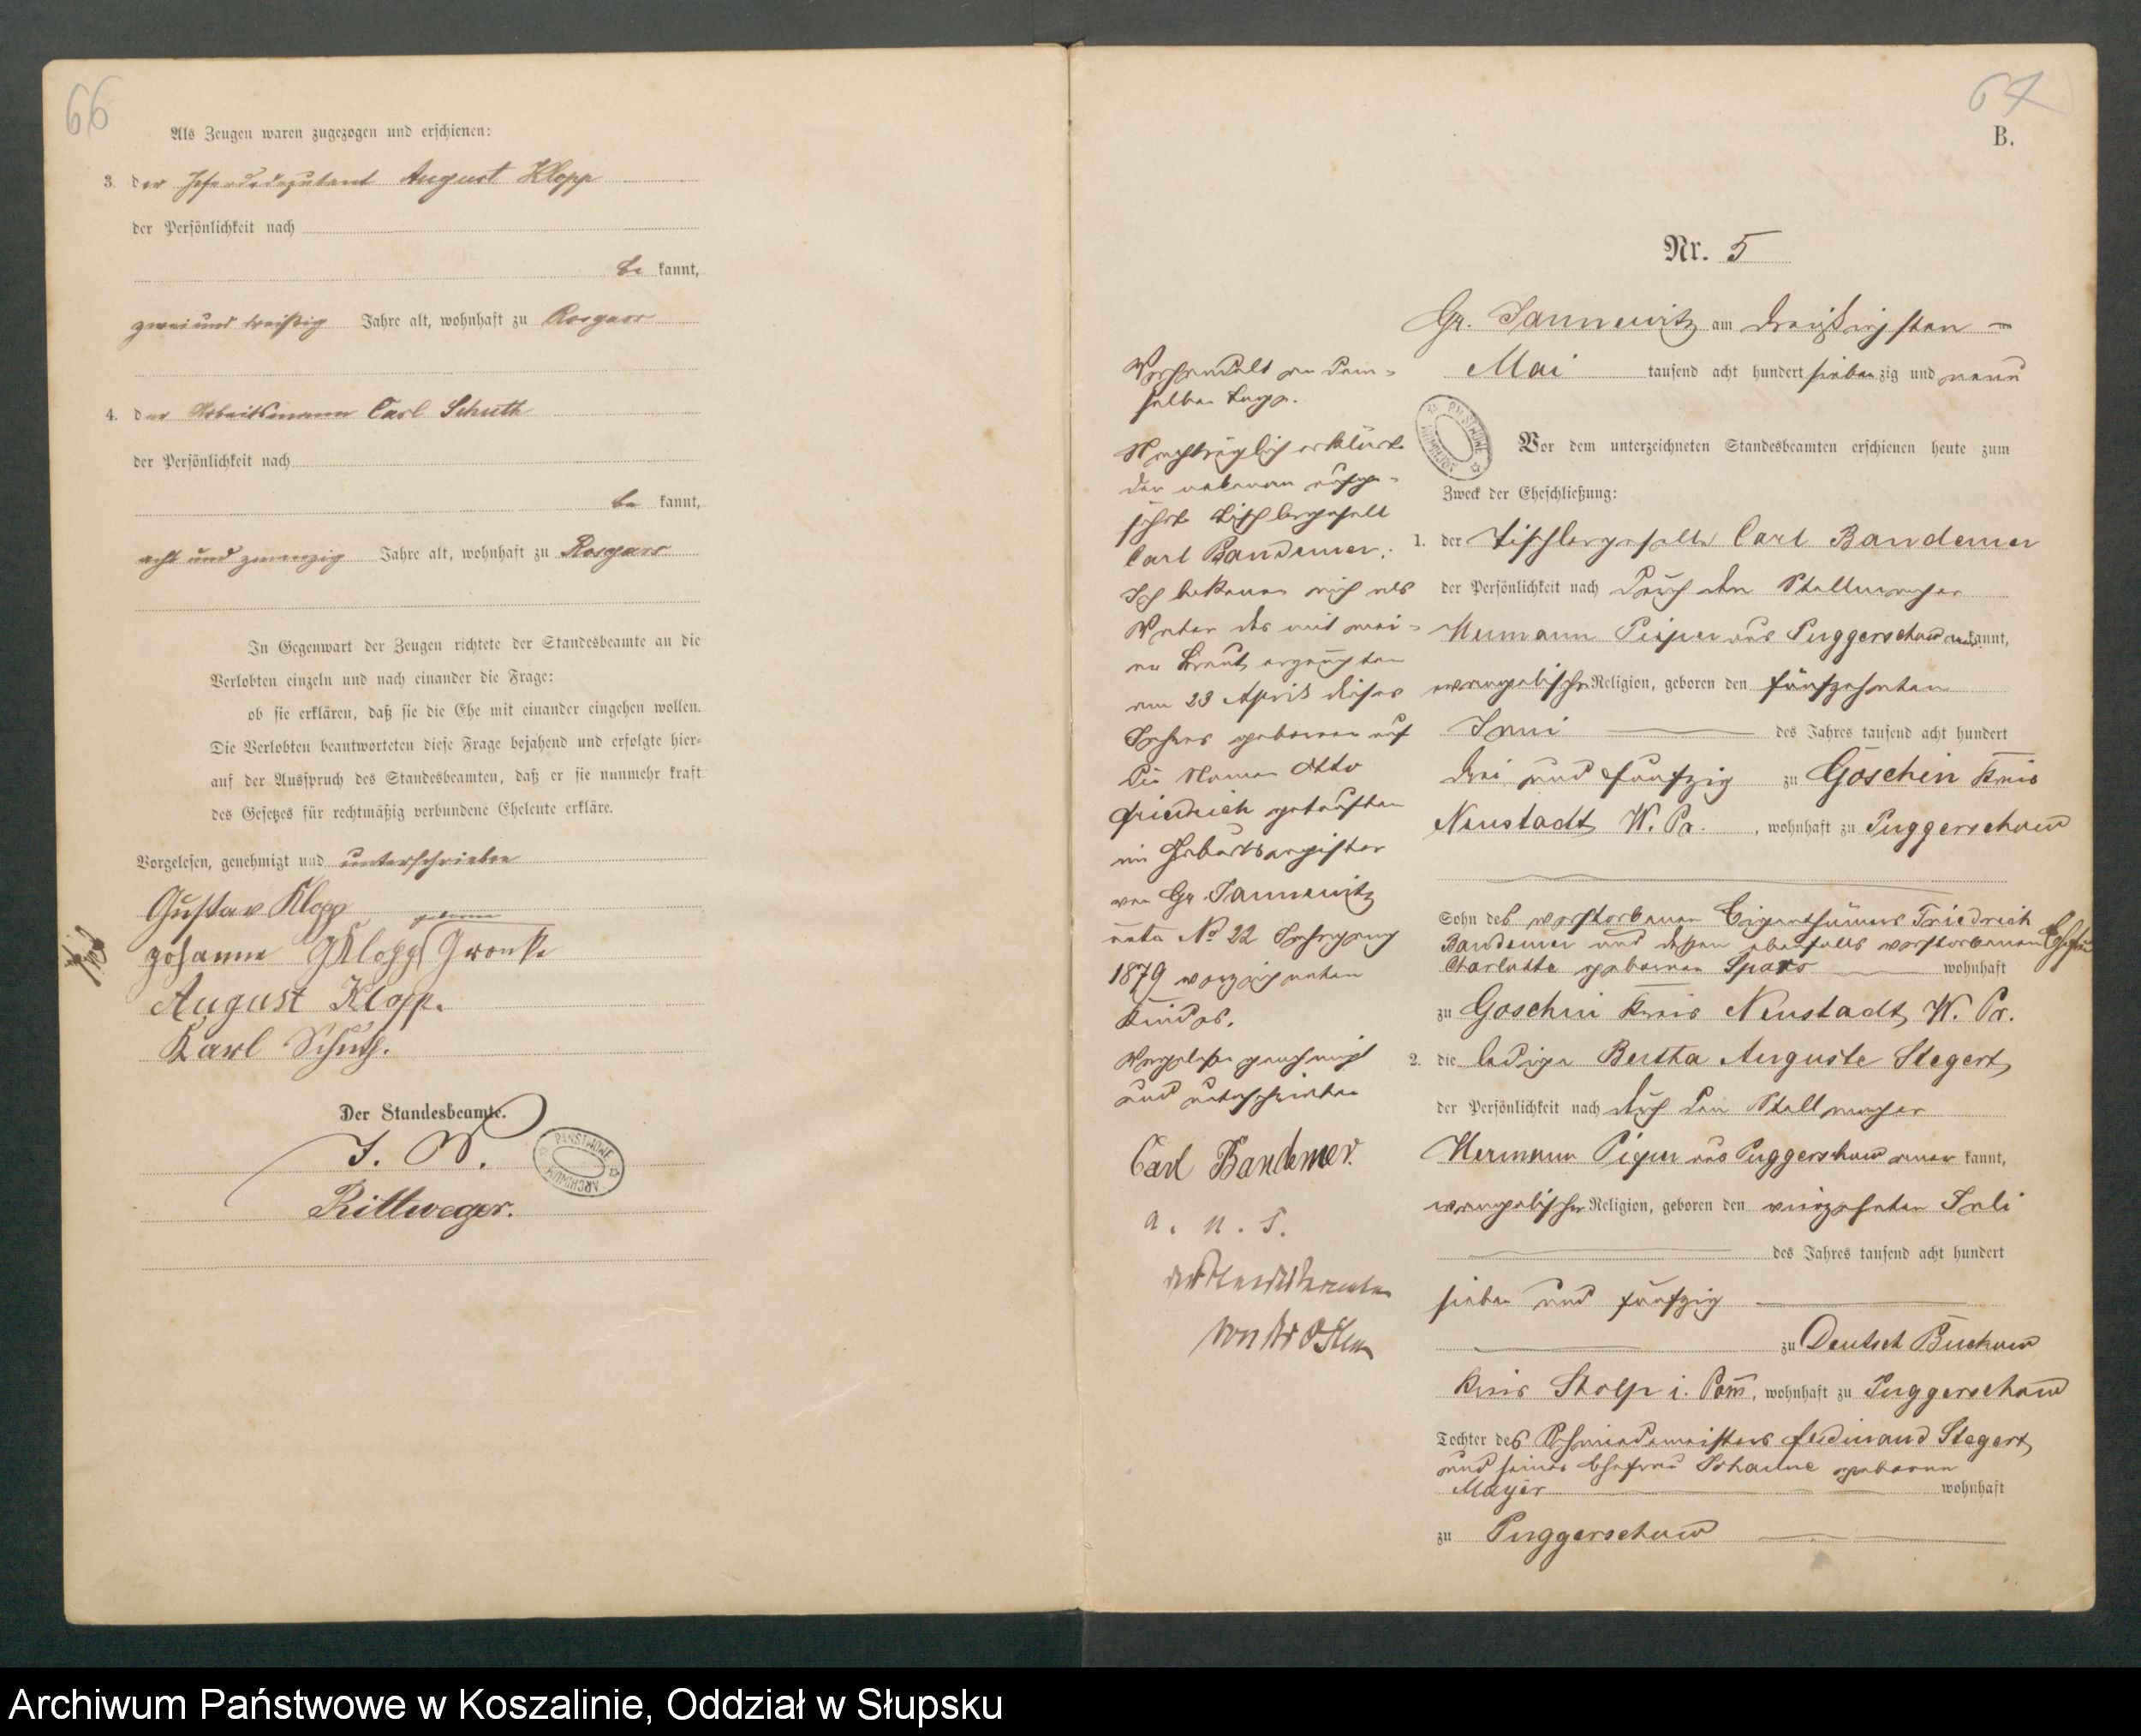 66
Als Zeugen waren zugezogen und erschienen:
3. der Pferdedeputant August Klopp
der Persönlichkeit nach
be kannt,
zwei und dreißig Jahre alt, wohnhaft zu Rosgars
4. der Arbeitsmann Carl Schuth
der Persönlichkeit nach
be kannt,
acht und zwanzig Jahre alt, wohnhaft zu Rosgars
In Gegenwart der Zeugen richtete der Standesbeamte an die
Verlobten einzeln und nach einander die Frage:
ob sie erklären, daß sie die Ehe mit einander eingehen wollen.
Die Verlobten beantworteten diese Frage bejahend und erfolgte hier-
auf der Ausspruch des Standesbeamten, daß er sie nunmehr kraft
des Gesetzes für rechtmäßig verbundene Eheleute erkläre.
Vorgelesen, genehmigt und unterschrieben
Gustav Klopp
geborene
Johanna Klopp Gronke
August Klopp.
Karl Schuth.
Der Standesbeamte.
J. V.
Rittweger.
PAŃSTWOWE ARCHIWUM
B.
Nr. 5
Gr. Jannewitz am dreißigsten
Mai tausend acht hundert siebenzig und neun
PAŃSTWOWE ARCHIWUM
Vor dem unterzeichneten Standesbeamten erschienen heute zum
Zweck der Eheschließung:
1. der Tischlergeselle Carl Bandemer
der Persönlichkeit nach durch den Stellmacher
Hermann Pieper aus Puggerschow aner kannt,
evangelischer Religion, geboren den fünfzehnten
Juni des Jahres tausend acht hundert
drei und fünfzig zu Goschin Kreis
Neustadt W. Pr., wohnhaft zu Puggerschow
Sohn des verstorbenen Eigenthümers Friedrich
Bandemer und dessen ebenfalls verstorbenen Ehefrau
Charlotte geborenen Spars wohnhaft
zu Goschin Kreis Neustadt W. Pr.
2. die ledige Bertha Auguste Stegert
der Persönlichkeit nach durch den Stellmacher
Hermann Pieper aus Puggerschow aner kannt,
evangelischer Religion, geboren den vierzehnten Juli
des Jahres tausend acht hundert
sieben und fünfzig
zu Deutsch Buckow
Kreis Stolp i. Pom, wohnhaft zu Puggerschow
Tochter des Schmiedemeisters Ferdinand Stegert
und seiner Ehefrau Johanne geborene
Mayer wohnhaft
zu Puggerschow
Verhandelt an dem-
selben Tage.
Nachträglich erklärte
der nebenan aufge-
führte Tischlergesell
Carl Bandemer:
Ich bekenne mich als
Vater des mit mei-
ner Braut erzeugten
am 23 April dieses
Jahres geborenen auf
die Namen Otto
Friedrich getauften
im Geburtsregister
von Gr. Jannewitz
unter No 22 Jahrgang
1879 verzeichneten
Kindes.
Vorgelesen genehmigt
und unterschrieben
Carl Bandemer.
Der Standesbeamte
von der Osten
Archiwum Państwowe w Koszalinie, Oddział w Słupsku